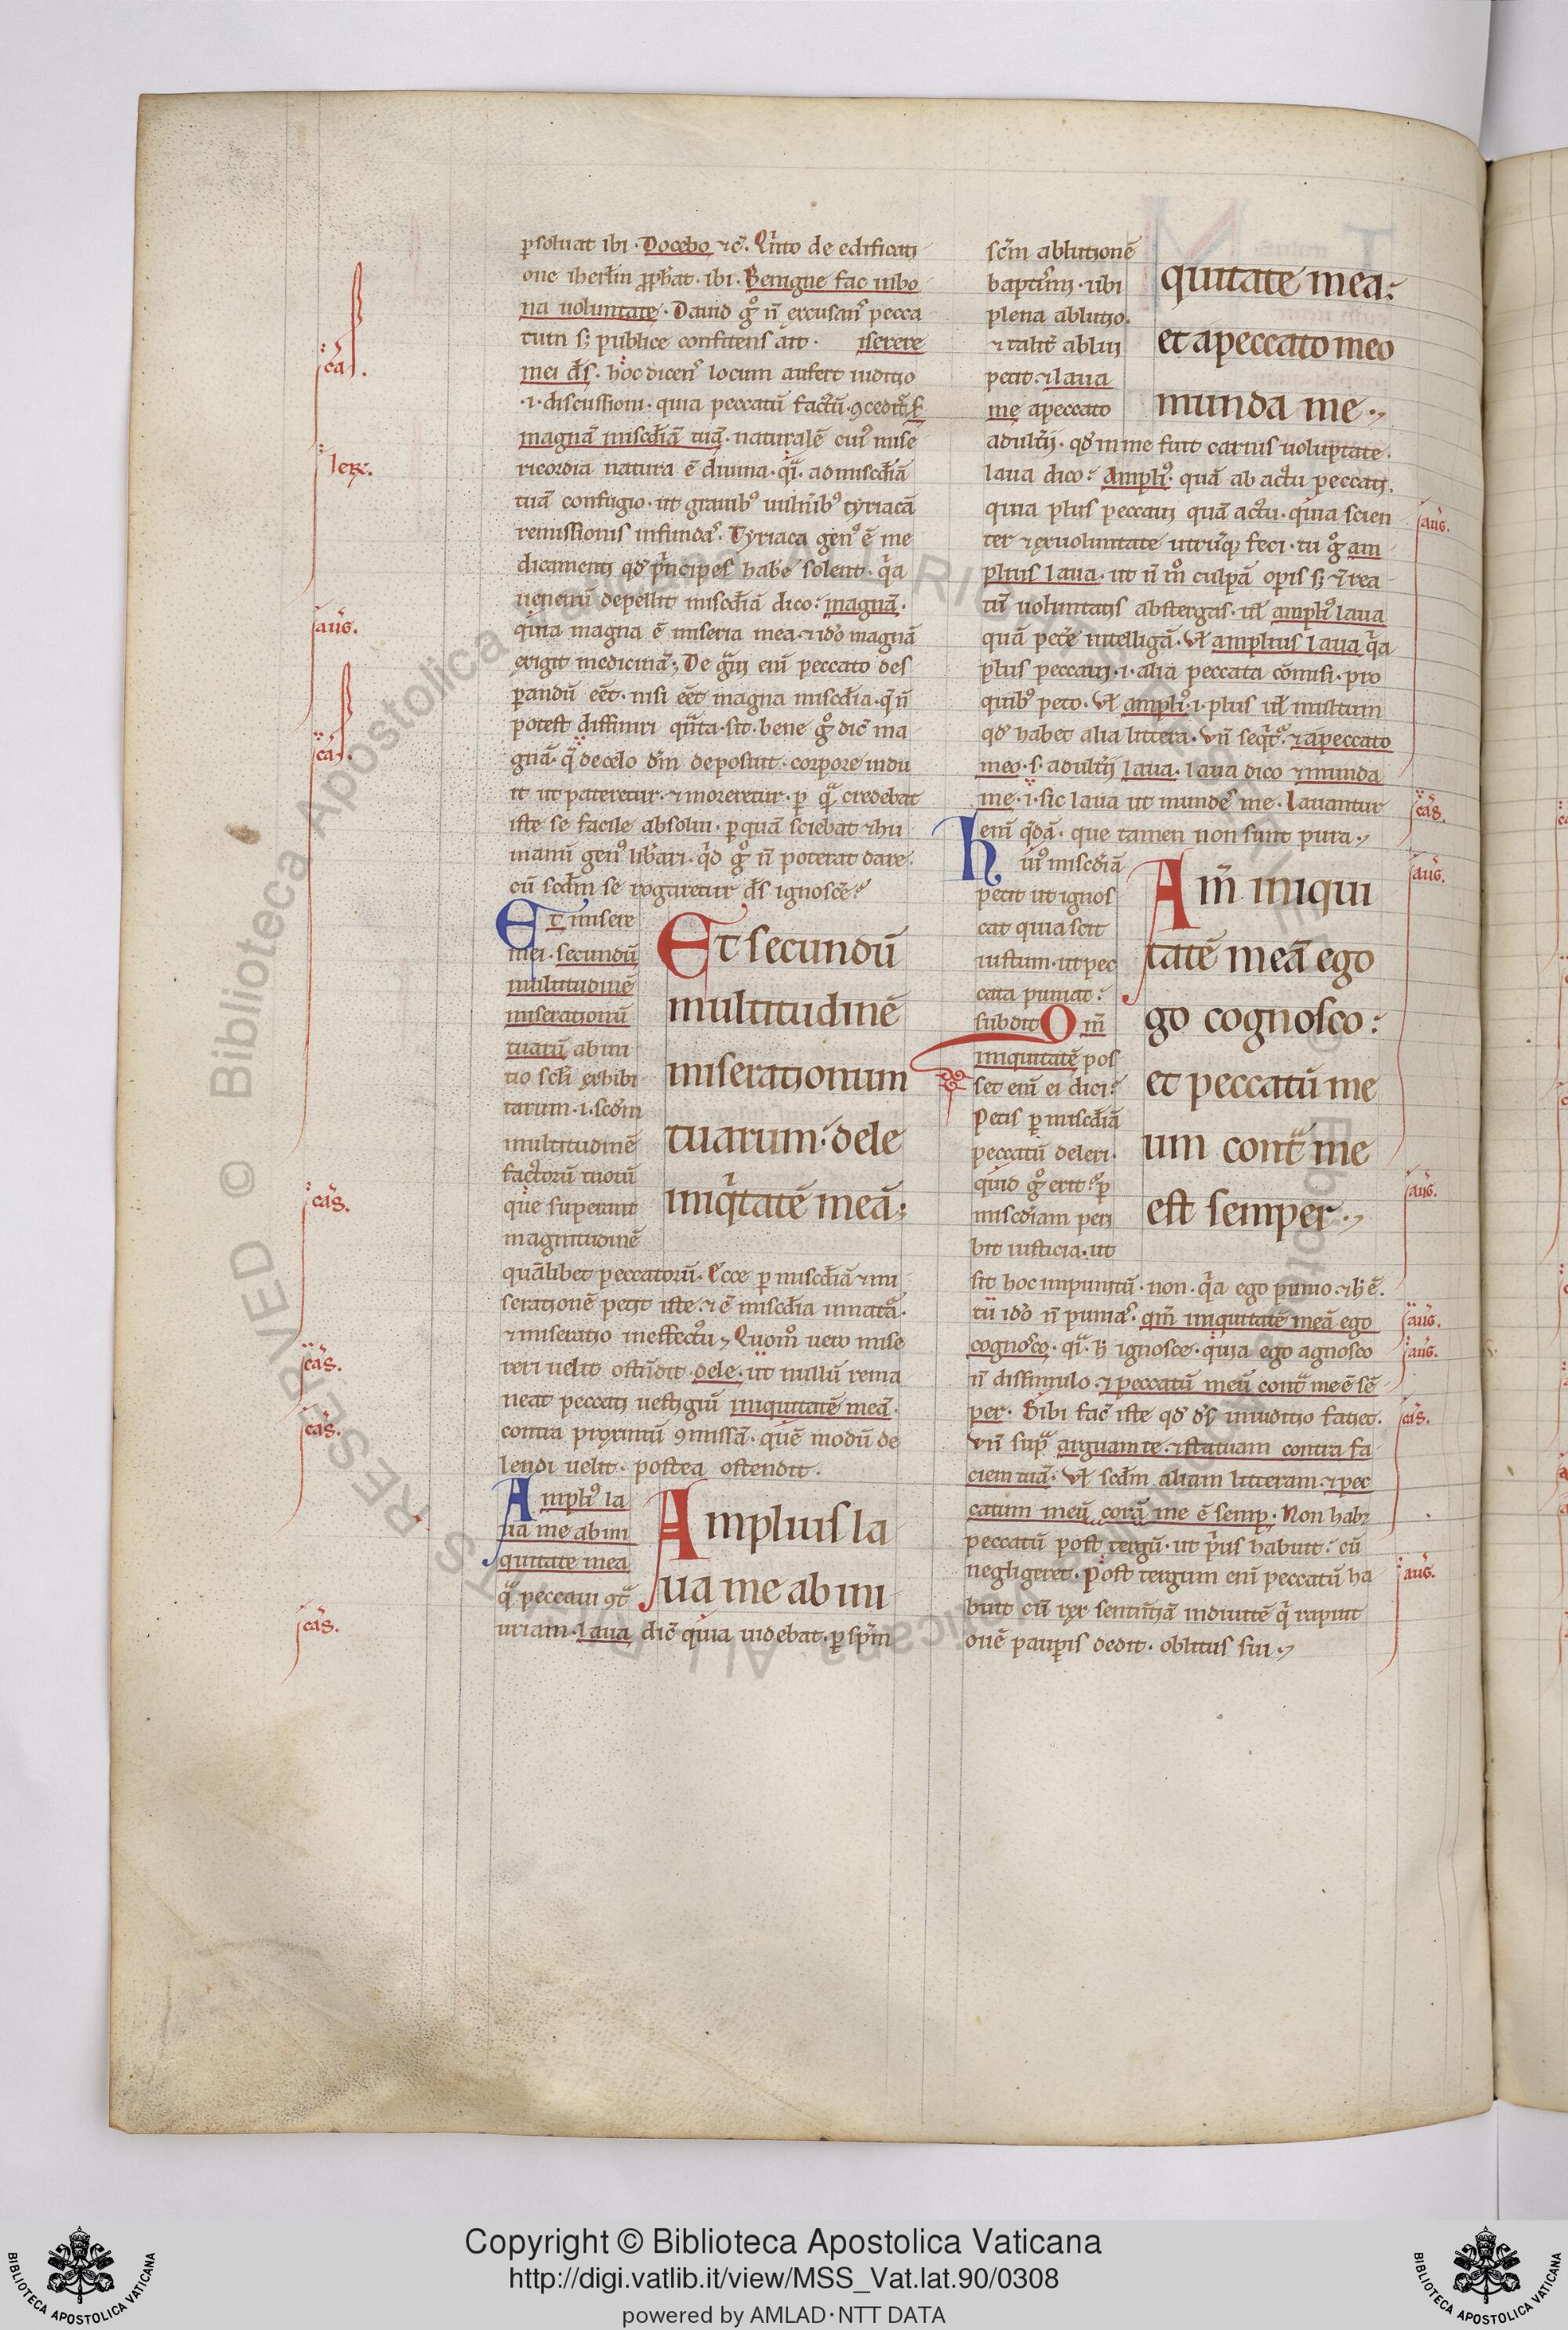 ꝑsoluat ibi · Docebo ⁊cͣ. Qͥnto de edificati
one iherlm̄ ꝓph̄at · ibi · Benigne fac ī ubo
na uoluntate · Dauid gͦ n̄ excusanˢ pecca
tum sꝫ publice confitens ait · iserere
mei d̄s · hoc dicenˢ locum aufert iuditio
·i· discussioni · quia peccatū factū · ꝯcedit᷑
magnā misc̄diā tuā · naturalē cuiꝰ mise
ricordia natura ē diuina · qͣi · ad misc̄diā
tuā confugio · ut grauibꝰ uulnībꝰ tyriacā
remissionis infundaˢ · Tyriaca genꝰ ē me
dicamenti qd̄ pͥncipes habē solent · qͥa
uenenū depellit misc̄diā dico · magnā ·
quia magna ē miseria mea · ⁊ idō magnā
exigit medicinā · De gͣui enī peccato des
ꝑandū eēt · nisi eēt magna misc̄dia · q̄ n̄
potest diffiniri qͣnta sit · bene gͦ dic̄ ma
gnā · qͣ de celo dn̄m deposuit · corpore indu
it ut pateretur · ⁊ moreretur · ꝑ qͣ credebat
iste se facile absolui · ꝑ quā sciebat ⁊ hu
manū genꝰ lib̄ari · qͥd gͦ n̄ poterat dare
cū sc̄dm se rogaretur d̄s ignoscē?
Et misere
mei · secundū
multitudinē
miserationū
tuarū ab ini
tio scl̄i exhibi
tarum · i · scd̄m
multitudinē
factorū tuorū
que superant
magnitudinē
Et secundū
multitudinē
miserationum
tuarum : dele
iniqͥtatē meā :
quālibet peccatorū · Ecce ꝑ misc̄diā ⁊ mi
serationē petit iste · ⁊ ē misc̄dia innata ·
⁊ miseratio in effectu · Quom̊ uero mise
reri uelit ostn̄dit · dele · ut nullū rema
neat peccati uestigiū iniquitatē meā ·
contra proximū ꝯmissā · quē modū de
lendi uelit · postea ostendit ·
Ampliꝰ la
ua me ab ini
quitate mea
qͣ peccaui ꝯtͣ
uriam · laua dic̄ quia uidebat · ꝑ spm̄
Amplius la
ua me ab ini
sc̄m ablutionē
baptismi · ubi
plena ablutio ·
⁊ talit̄ ablui
petit · ⁊ laua
me a peccato
quitate mea :
et a peccato meo
munda me ·
adulterii · qd̄ in me fuit carnis uoluptate ·
laua dico : Ampliꝰ · quā ab actu peccati ·
quia plus peccaui quā actu · quia scien
ter ⁊ ex uoluntate utrūqꝫ feci · tu gͦ am
plius laua · ut n̄ m̊ culpā opis sꝫ ⁊ rea
tū uoluntatis abstergas · ul̄ ampliꝰ laua
quā petē intelligā · Vl̄ amplius laua qͥa
plus peccaui · i · alia peccata cōmisi · pro
quibꝰ peto · Vl̄ ampliꝰ · i · plus ul̄ multum
qd̄ habet alia littera · Vn̄ seqͥtᷣ · ⁊ a peccato
meo · s · adulterii laua · laua dico ⁊ munda
me · i · sic laua ut mundeˢ me · Lauantur
enī qͥdā · que tamen non sunt pura ·
huiꝰ misc̄diā
petit ut ignos
cat quia scit
iustum · ut pec
cata puniat :
subdit Qm̄
iniquitatē pos
set enī ei dici :
Petis ꝑ misc̄diā
peccatū deleri ·
quid gͦ erit? ꝑ
misc̄diam peri
bit iusticia · ut
Qm̄ iniqui
tatē meā ego
go cognosco :
et peccatū me
um contͣ me
est semper ·
sit hoc impunitū · non · qͥa ego punio · ⁊ h̄ ē ·
tu idō n̄ puniaˢ · qm̄ iniquitatē meā ego
cognosco · qͣi · h̄ ignosce · quia ego agnosco
n̄ dissimulo · ⁊ peccatū meū contͣ me ē sē
per · Sibi fac̄ iste qd̄ d̄s in iuditio faciet ·
Vn̄ supͣ arguam te · ⁊ statuam contra fa
ciem tuā · Vl̄ scd̄m aliam litteram · ⁊ pec
catum meū corā me ē semꝑ · Non habꝫ
peccatū post tergū · ut pͥus habuit : cū
negligeret · Post tergum enī peccatū ha
buit cū rex sententiā in diuitē qͥ rapuit
ouē pauꝑis dedit · oblitus sui ·
ca .
lex .
aug .
ca .
cas .
cas .
cas .
cas .
aug .
cas .
aug .
aug .
aug .
aug .
cas .
aug .
© Biblioteca Apostolica Vaticana. ALL RIGHTS RESERVED
Copyright © Biblioteca Apostolica Vaticana
http://digi.vatlib.it/view/MSS_Vat.lat.90/0308
powered by AMLAD·NTT DATA
BIBLIOTECA APOSTOLICA VATICANA
BIBLIOTECA APOSTOLICA VATICANA